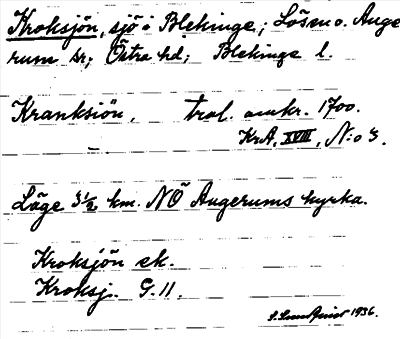 Kroksjön, sjö i Blekinge; Lösen o. Auge
rum sr; Östra hd; Blekinge l.
Kranksiön, trol. omkr. 1700.
KrA, XVIII, N:o 3.
Läge 3 1/2 km. NÖ Augerums kyrka.
Kroksjön ek.
Kroksj. G. 11.
1936.